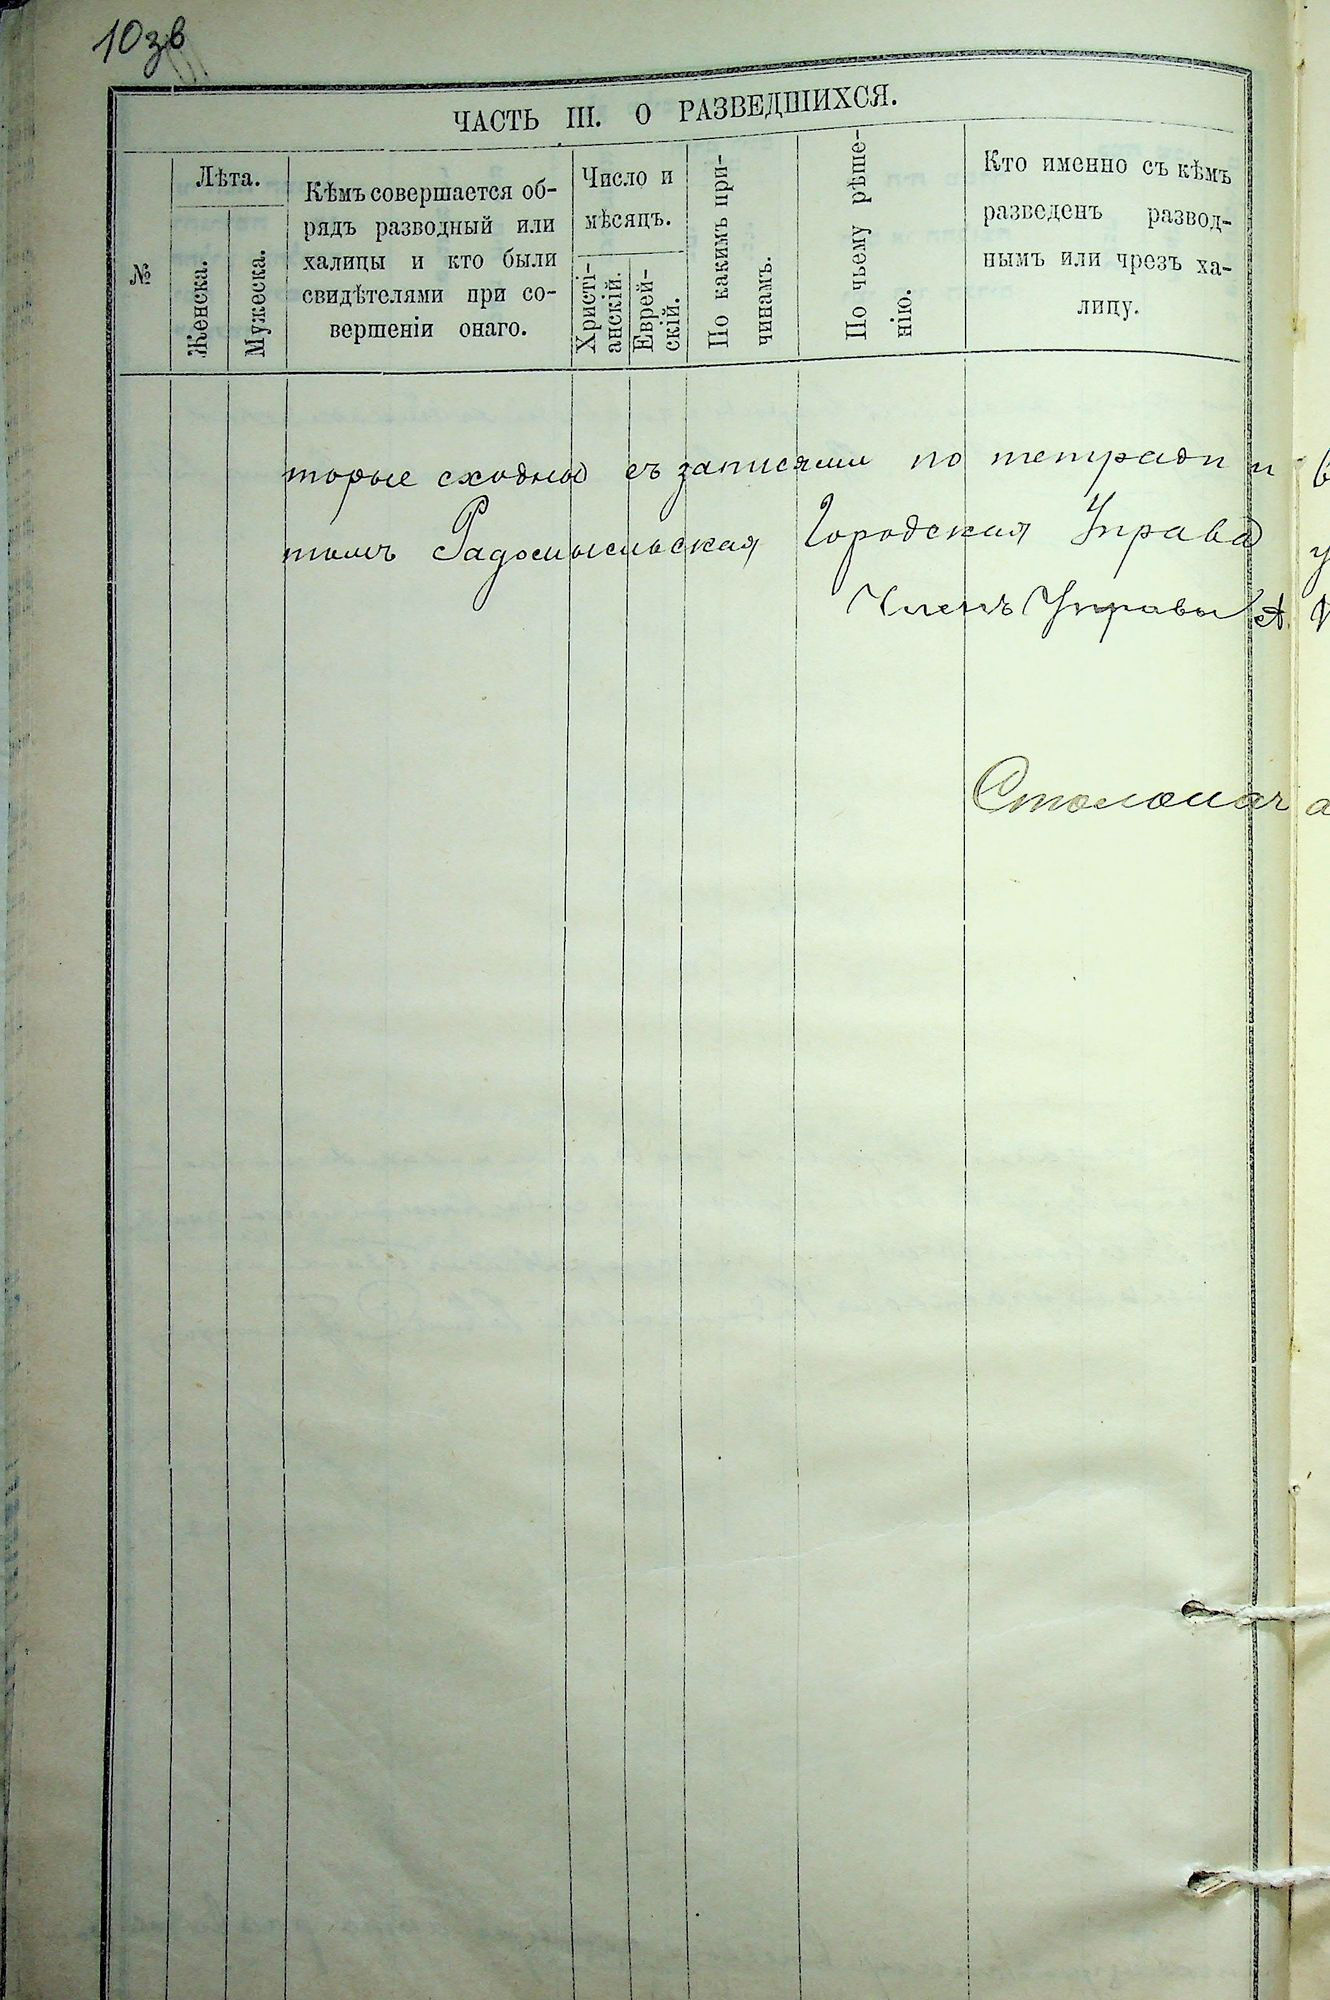 10 зв
ЧАСТЬ III. О РАЗВЕДШИХСЯ.
№
Лѣта.
Женска.
Мужеска.
Кѣмъ совершается об-
рядъ разводный или
халицы и кто были
свидѣтелями при со-
вершеніи онаго.
Число и
мѣсяцъ.
Христі-
анскій.
Еврей-
скій.
По какимъ при-
чинамъ.
По чьему рѣше-
нію.
Кто именно съ кѣмъ
разведенъ развод-
нымъ или чрезъ ха-
лицу.
торые сходны съ записями по тетради и в
томъ Радомысльская Городская Управа у
Членъ Управы А.
Столонача